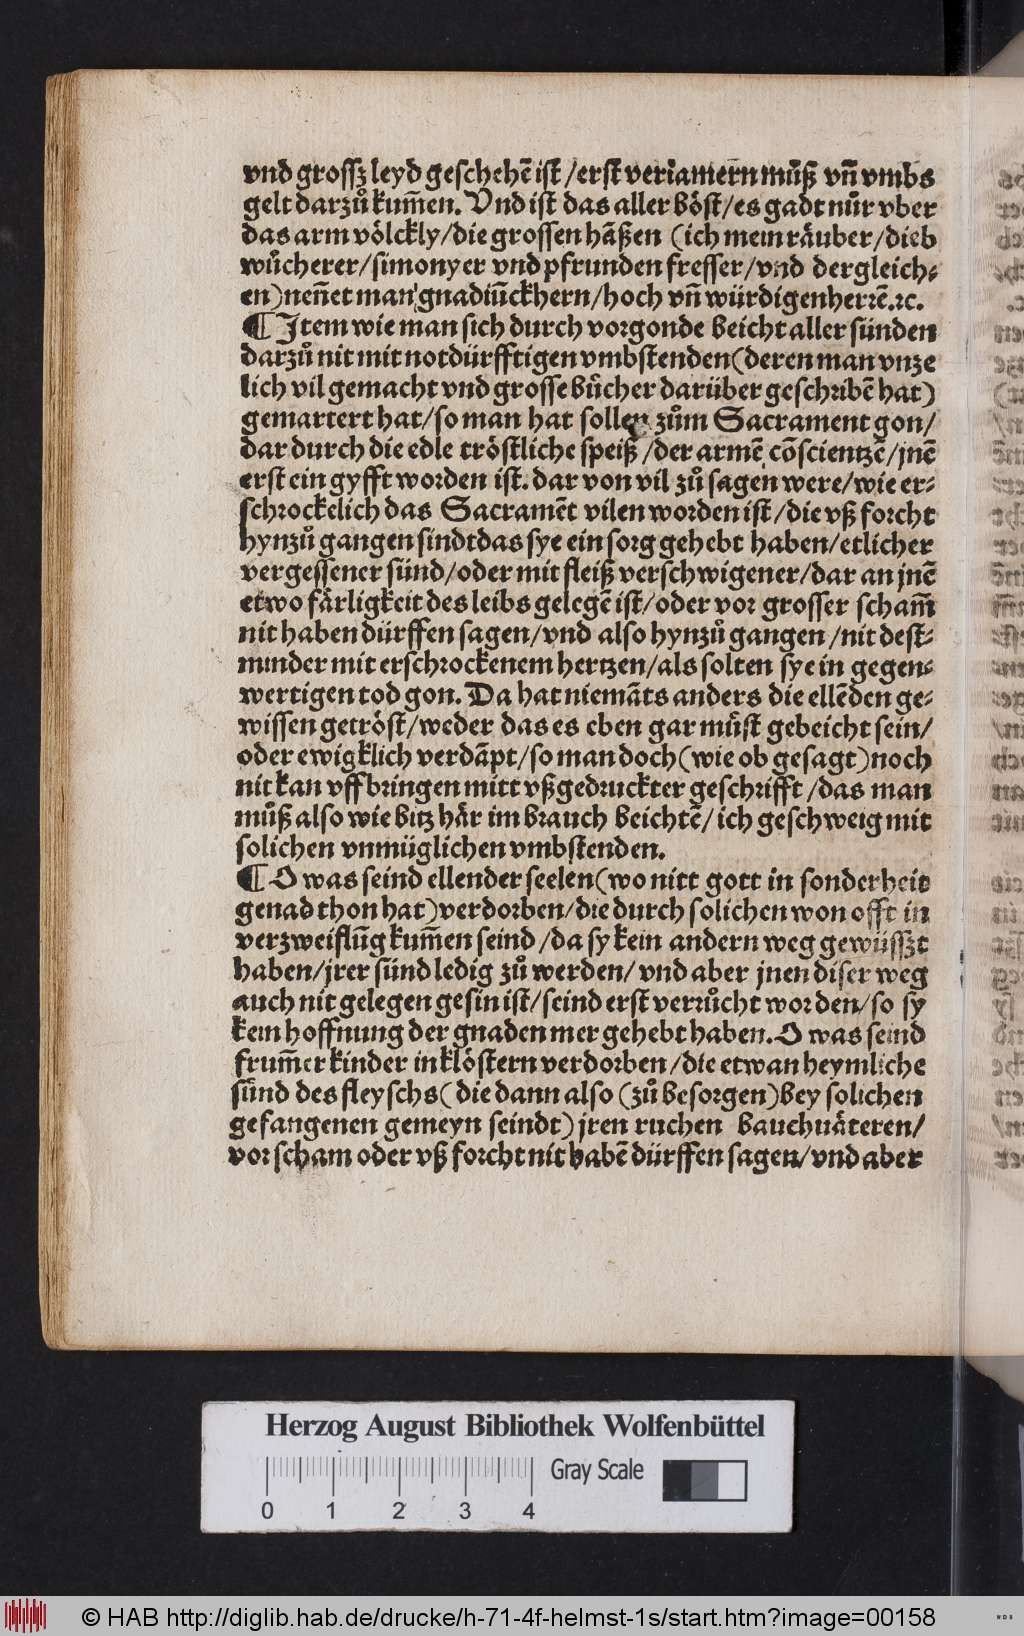 vnd grossz leyd geschehẽ ist / erst veriamern můß vñ vmbs
gelt darzů kum̃en. Vnd ist das aller böst / es gadt nůr vber
das arm völckly / die grossen hãßen (ich mein räuber / dieb
wůcherer / simonyer vnd pfrunden fresser / vnd dergleich⸗
en) neñet man gnadiũckhern / hoch vñ würdigenherrẽ.ꝛc.
¶ Item wie man sich durch vorgonde beicht aller sünden
darzů nit mit notdürfftigen vmbstenden (deren man vnze
lich vil gemacht vnd grosse bůcher darüber geschribẽ hat)
gemartert hat / so man hat sollen zům Sacrament gon /
dar durch die edle tröstliche speiß / der armẽ cõscientzẽ / jnẽ
erst ein gyfft worden ist. dar von vil zů sagen were / wie er⸗
schrockelich das Sacramẽt vilen worden ist / die vß forcht
hynzů gangen sindt das sye ein sorg gehebt haben / etlicher
vergessener sünd / oder mit fleiß verschwigener / dar an jnẽ
etwo färligkeit des leibs gelegẽ ist / oder vor grosser scham̃
nit haben dürffen sagen / vnd also hynzů gangen / nit dest⸗
minder mit erschrockenem hertzen / als solten sye in gegen⸗
wertigen tod gon. Da hat niemãts anders die ellẽden ge⸗
wissen getröst / weder das es eben gar můst gebeicht sein /
oder ewigklich verdãpt / so man doch (wie ob gesagt) noch
nit kan vffbringen mitt vßgedruckter geschrifft / das man
můß also wie bitz här im brauch beichtẽ / ich geschweig mit
solichen vnmüglichen vmbstenden.
¶ O was seind ellender seelen (wo nitt gott in sonderheit
genad thon hat) verdorben / die durch solichen won offt in
verzweiflũg kum̃en seind / da sy kein andern weg gewüsszt
haben / jrer sünd ledig zů werden / vnd aber jnen diser weg
auch nit gelegen gesin ist / seind erst verrůcht worden / so sy
kein hoffnung der gnaden mer gehebt haben. O was seind
frum̃er kinder in klöstern verdorben / die etwan heymliche
sünd des fleyschs (die dann also (zů besorgen) bey solichen
gefangenen gemeyn seindt) jren ruchen bauchuäteren /
vor scham oder vß forcht nit habẽ dürffen sagen / vnd aber
Herzog August Bibliothek Wolfenbüttel
Gray Scale
0 1 2 3 4
© HAB http://diglib.hab.de/drucke/h-71-4f-helmst-1s/start.htm?image=00158